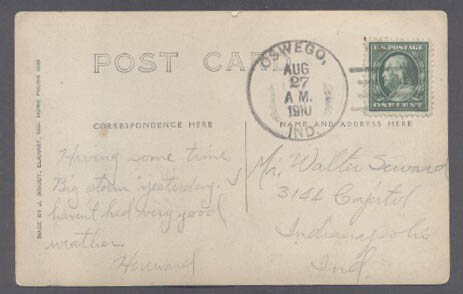 POST CARD
OSWEGO,
AUG
27
A M.
1910
IND.
U.S. POSTAGE
ONE CENT
CORRESPONDENCE HERE
NAME AND ADDRESS HERE
Having some time
Big storm yesterday.
haven't had very good
weather.
Mr. Walter Seward
3144 Capitol
Indianapolis
Ind.
MADE BY J. INBODY, ELKHART, IND. HOME PHONE